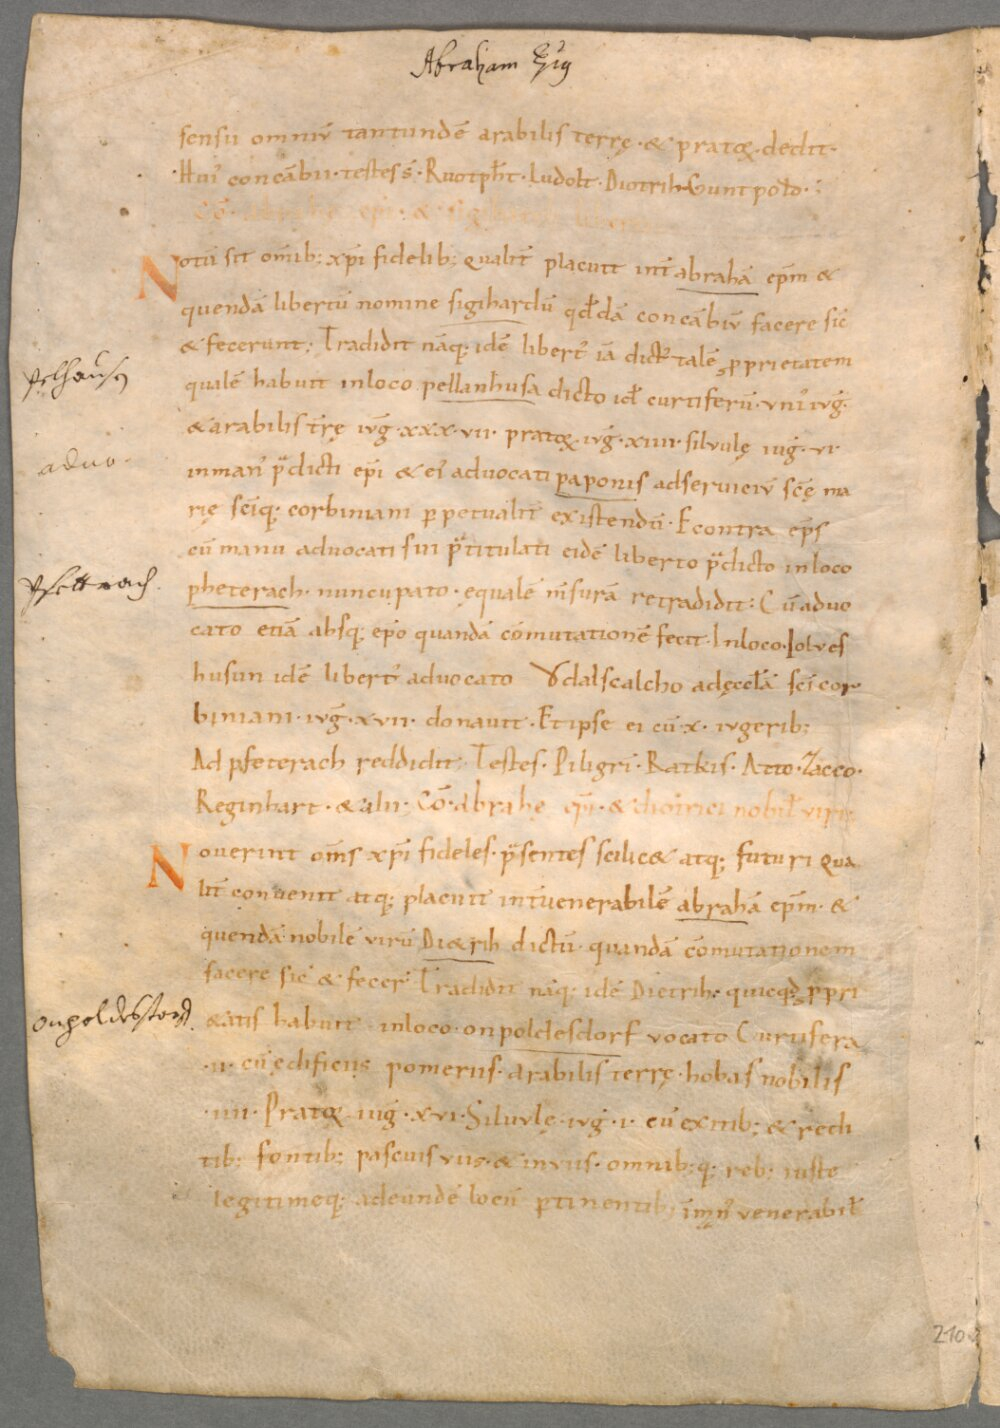 Abraham
sensu omniū tantundē arabilis terrę · & pratoꝝ · dedit ·
Hui᾽ concābii · testes s̄ · Ruotp̄ht · Ludolt · Diotrih · Guntpolo ·
Cō · abrahę ep̄i · &
Notū sit om̄ib; xp̄i fidelib; qualit̄ placuit int̄ abrahā ep̄m &
quendā libertū nomine sigihardū qd̄dā concābiū facere sic̄
& fecerunt; Tradidit nāq; idē libert᾽ iā dict᾽ talē ꝓprietatem
pelhausn
qualē habuit inloco pellanhusa dicto id̄ curtiferū · uni᾽ iuḡ ·
& arabilis t̄rę iuḡ · xxx · vii · pratoꝝ iuḡ · xiiii · siluulę iuḡ · vi ·
aduo ·
inman᾽ p̄dicti ep̄i & ei᾽ aduocati paponis adseruiciū sc̄ę ma
rię sc̄iq; corbiniani ꝑpetualit̄ existendū · Econtra ep̄s
cū manu aduocati sui p̄titulati eidē liberto p̄dicto inloco
pfettrach
pheterach · nuncupato · equalē m̄surā retradidit : Cū aduo
cato etiā absq; ep̄o quandā cōmutationē fecit · Inloco · Iolues
husun idē libert᾽ aduocato Vdalscalcho adęccl̄ā sc̄i cor
biniani · iuḡ · xvii · donauit · Et ipse ei cū · x · iugerib;
Ad pfeterach reddidit · Testes · Piligri · Ratkis · Atto · Zacco ·
Reginhart · & alii; Cō · abrahę ep̄i · & diotrici nobil̄ viri
Nouerint om̄s xp̄i fideles · p̄sentes scilic& atq; futuri qua
lit̄ conuenit atq; placuit int̄ uenerabilē abrahā ep̄m · &
quendā nobilē uirū Di&rih dictū · quandā cōmutationem
facere sic̄ & fecer᾽ Tradidit nāq; idē Dietrih · quicq̄d ꝓpri
onpoldestorf
&atis habuit inloco · onpoldesdorf vocato Curtifera
· ii · cū ędificiis pomeriis · arabilis terrę · hobas nobilis
· iiii · Pratoꝝ iuḡ · xvi · Siluulę · iuḡ · i · cū exitib; & redi
tib; fontib; pascuis uiis · & inuiis · omnib; q; reb; iuste
legitimeq; adeundē locū ꝑtinentib; uenerabil̄
210